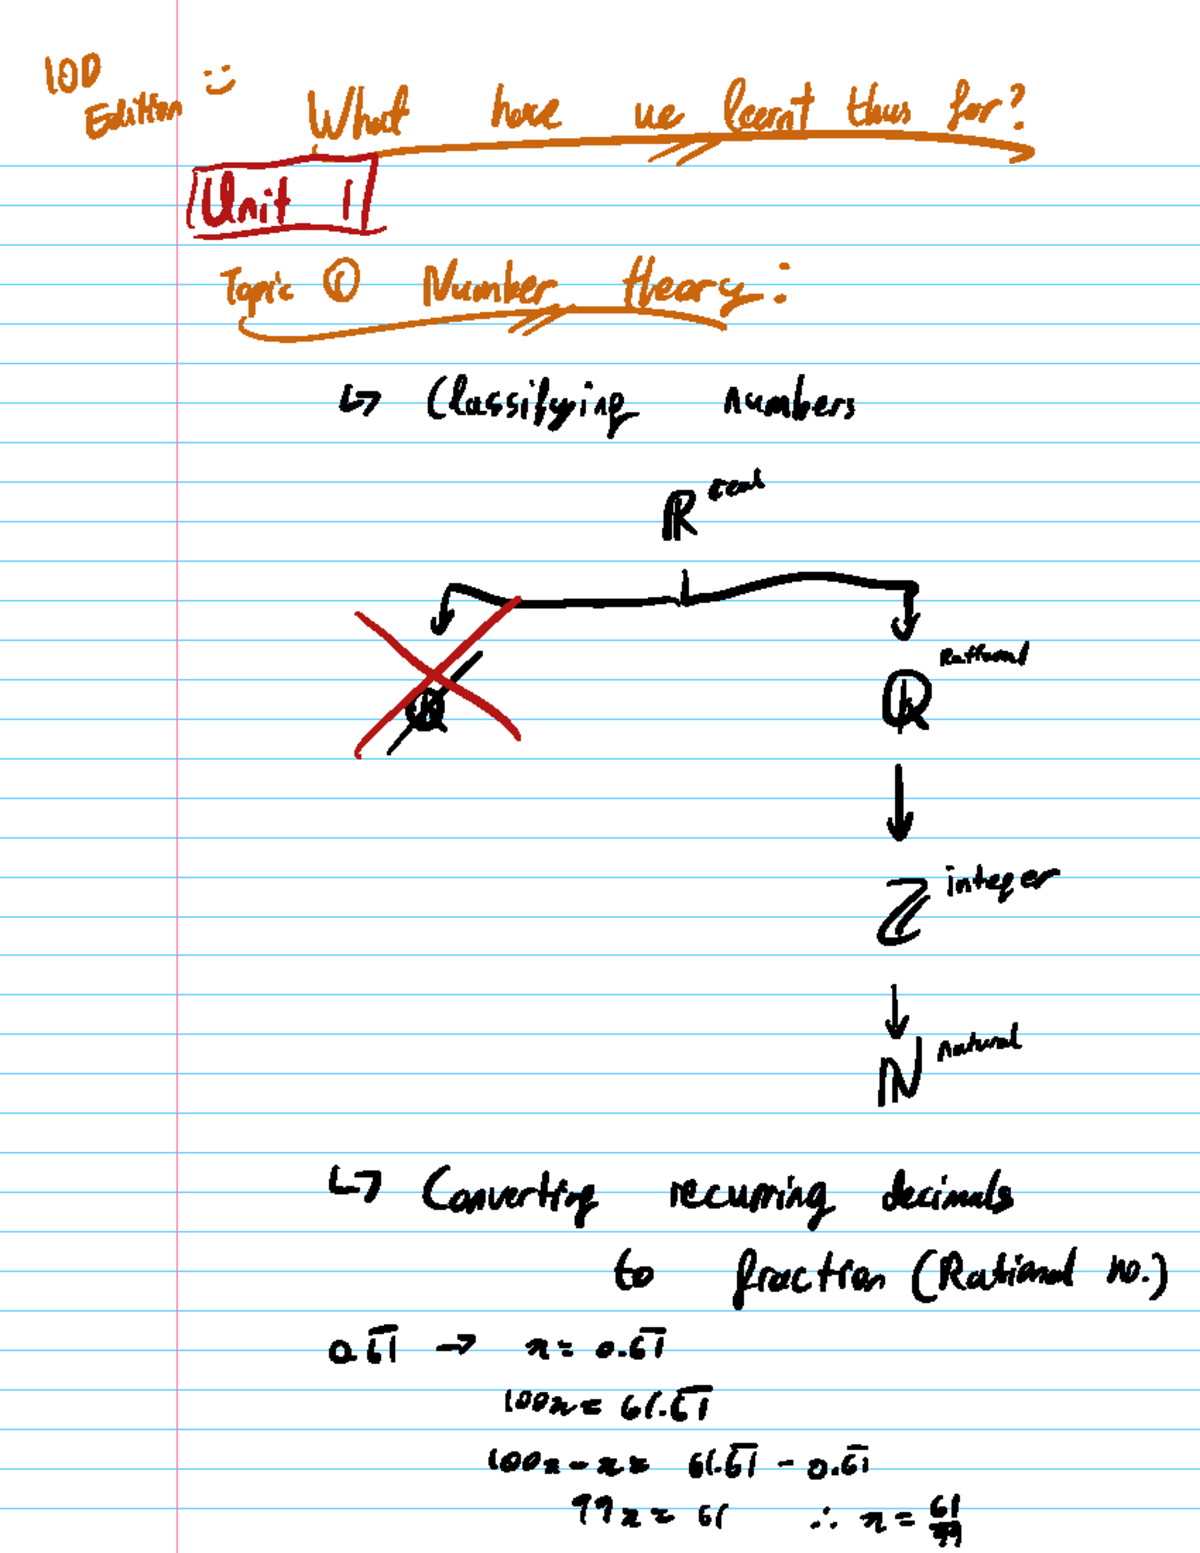 10D
Edition :)
What have we learnt thus far?
Unit 1
Topic ① Number theory:
↳ Classifying numbers
ℝ real
ℚ
ℚ Rational
ℤ integer
ℕ natural
↳ Converting recurring decimals
to fraction (Rational no.)
0.6̅1̅ → x = 0.6̅1̅
100x = 61.6̅1̅
100x - x = 61.6̅1̅ - 0.6̅1̅
99x = 61 ∴ x = 61/99